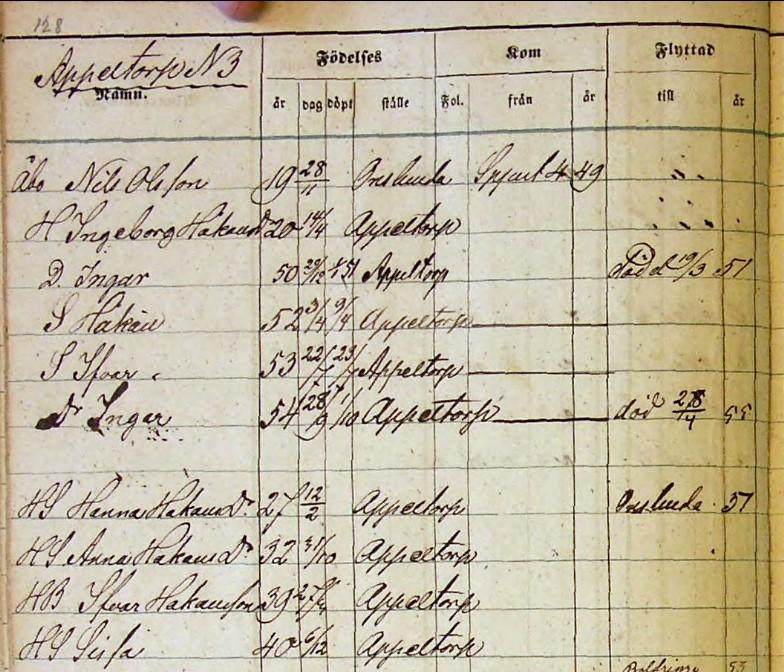 128
Appeltorp N 3
Namn.
Födelses Kom Flyttad
år dag döpt ställe Fol. från år till år
Åbo Nils Olsson 19 28/11 Onslunda 49
H Ingeborg Håkansdr 20 14/4 Appeltorp
D. Ingar 50 Appeltorp död d 19/3 51
S Håkan 52 3/4 9/4 Appeltorp
S Ifvar 53 22/7 23/7 Appeltorp
Dr Ingar 54 28/9 1/10 Appeltorp död 4 55
HS Hanna Håkansdr 27 12/2 Appeltorp Onslunda 57
HS Anna Håkansdr 32 31/10 Appeltorp
HB Ifvar Håkansson 39 Appeltorp
HS Sissa 40 6/12 Appeltorp
53